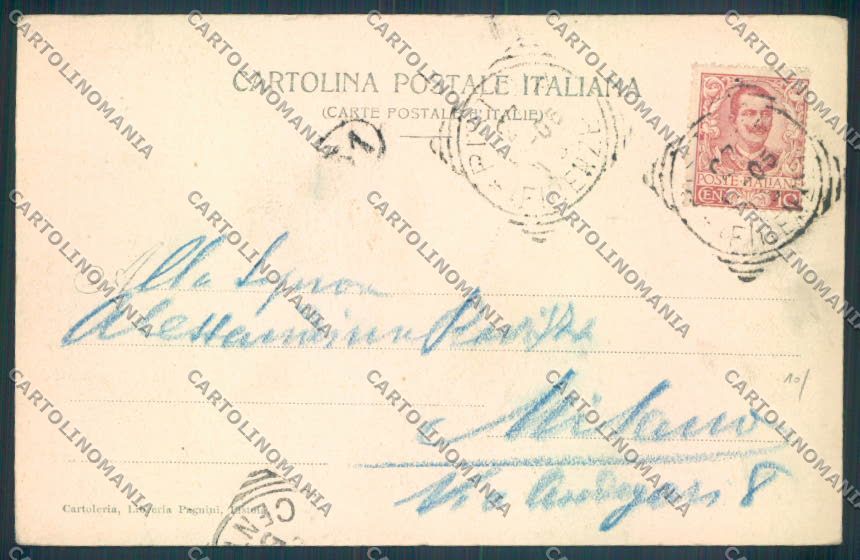 CARTOLINA POSTALE ITALIANA
(CARTE POSTALE D'ITALIE)
POSTE ITALIANE
(FIRENZE)
Alla Signora
Alessandrina
a Milano
Via 8
10/
Cartoleria, Libreria Pagnini, Pistoia
CARTOLINOMANIA